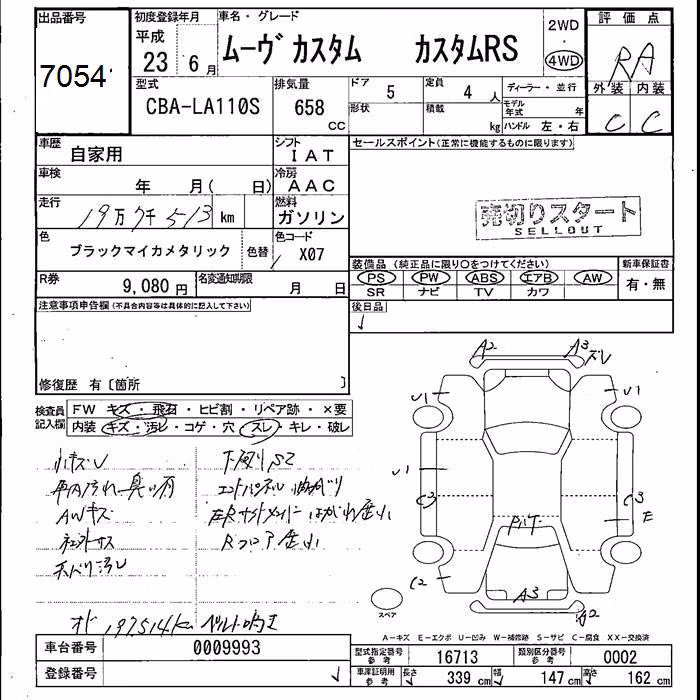 出品番号
7054
初度登録年月
平成
23年 6月
車名・グレード
ムーヴ カスタム カスタムRS
2WD
・
4WD
評価点
RA
外装 内装
C C
型式
CBA-LA110S
排気量
658
CC
ドア
5
定員
4 人
形状
積載
kg
ディーラー・並行
モデル年式 年
ハンドル 左・右
車歴
自家用
シフト
IAT
セールスポイント(正常に機能するものに限ります)
車検
年 月( 日)
冷房
AAC
走行
19万7千513 km
燃料
ガソリン
売切りスタート
SELLOUT
色
ブラックマイカメタリック
色替
色コード
X07
装備品 (純正品に限り○をつけてください)
新車保証書
PS PW ABS エアB AW
SR ナビ TV カワ
有・無
R券
9,080円
名変通知期限
月 日
後日品
注意事項申告欄(不具合内容等は具体的に記入して下さい)
修復歴 有〔箇所 〕
検査員記入欄
FW キズ・飛石・ヒビ割・リペア跡・×要
内装 キズ・汚れ・コゲ・穴・スレ・キレ・破レ
小キズU
下廻りS2
車内汚れ臭い有
AWキズ
Rフロア歪小
天バリ汚レ
オド197514km ベルト鳴き
A2 A3 ズレ
U1 U1
U1
C3 C3
P/T
E
C2
A3
A2
スペア
A-キズ E-エクボ U-凹み W-補修跡 S-サビ C-腐食 XX-交換済
車台番号
0009993
登録番号
型式指定番号
参考
16713
類別区分番号
参考
0002
車庫証明用
参考
長さ 339 cm 幅 147 cm 高さ 162 cm